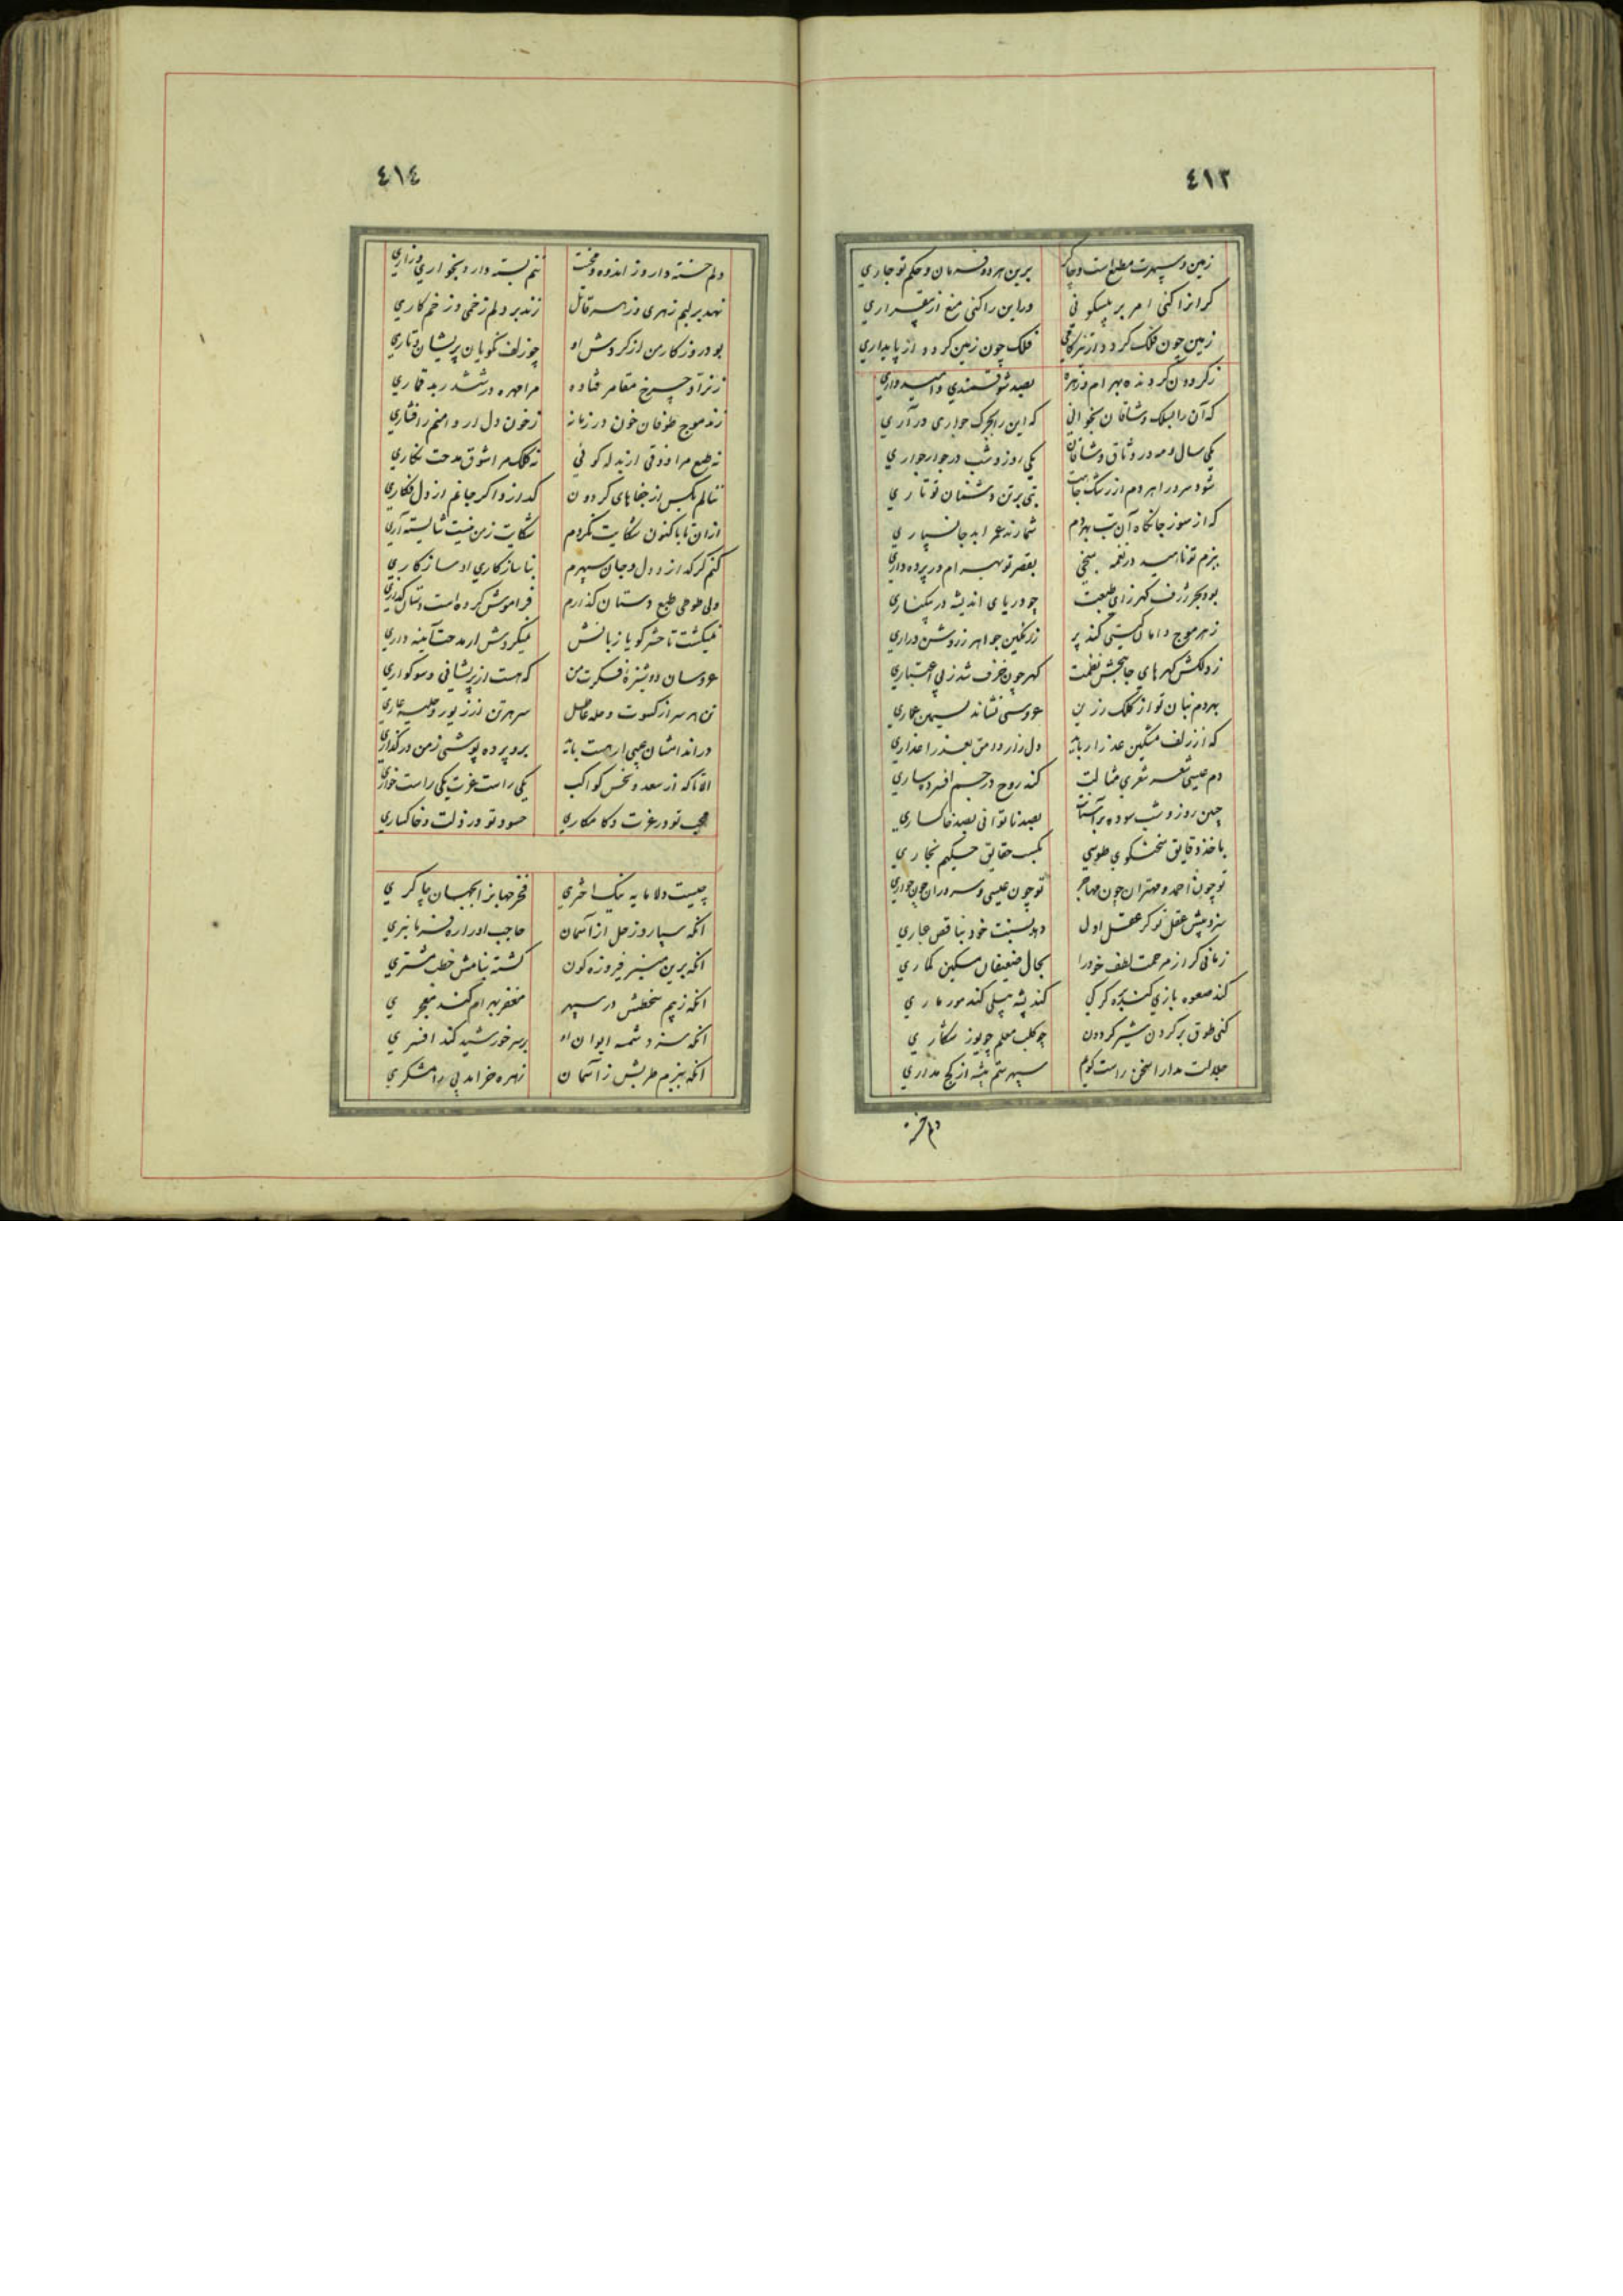 ٤١٣
زمین و سپهرت مطیع است و چاکر برین هر دو فرمان و حکم تو جاری
گر انرا کنی امر بر بیسکونی ور این را کنی منع از بیقراری
زمین چون فلک گردد از فلک چون زمین گردد از پایداری
ز گردون گردنده بهرام و زهره بصد شوقمندی و امیدواری
که آن را بسلک وشاقان بخوانی که این را بجرگ جواری در آری
یکی سال و مه در وثاق وشاقان یکی روز و شب در جوار جواری
شود مر ورا هر دم از رشک تبی بر تن دشمنان تو تاری
که از سوز جانکاه آن تب بهر دم شمارند عمر ابد جانسپاری
ببزم تو ناهید در نغمه سنجی بقصر تو بهرام در پرده داری
بود بحر ژرف گهر زای طبعت چو دریای اندیشه در بیکناری
ز هر موج دامان گیتی کند پر ز رنگین جواهر ز روشن دراری
ز دلکش گهرهای جانبخش نظمت گهر چون خزف شد ز بی اعتباری
بهر دم بنان تو از کلک رزین عروسی نشاند بسیمین عماری
که از زلف مشکین عذار رباید دل زار وامق بعذرا عذاری
دم عیسی شعر شعری مثالت کند روح در جسم افسرده ساری
جبین روز و شب سوده بر آستانت بصد ناتوانی بصد خاکساری
باخذ دقایق سخنگوی طوسی بکسب حقایق حکیم بخاری
تو چون احمد و مهتران چون مهاجر تو چون عیسی و سروران چون حواری
سزد پیش عقل تو گر عقل اول دهد نسبت خود بناقص عیاری
زمانی گر از مرحمت لطف خود را بحال ضعیفان مسکین گماری
کند صعوه بازی کند بره گرگی کند پشه پیلی کند مور ماری
کنی طوق بر گردن شیر گردون چو کلب معلم چو یوز شکاری
جلالت مدارا سخن راست گویم سپهر ستم پیشه از کج مداری
دلم خسته
٤١٤
دلم خسته دارد ز اندوه و محنت تنم بسته دارد بخواری و زاری
نهد بر لبم زهری و زهر قاتل زند بر دلم زخمی و زخم کاری
بود روزگار من از گردش او چو زلف نکویان پریشان و تاری
ز نراد چرخ مقامر فتاده مرا مهره در ششدر بد قماری
زند موج طوفان خون در زمانه ز خون دل ار دامنم را فشاری
نه طبع مرا ذوقی از بذله گوئی نه کلک مرا شوق مدحت نگاری
ننالم بکس از جفاهای گردون گدازد اگر جانم از دل فکاری
ازان تا باکنون شکایت نکردم شکایت ز من نیست شایسته آری
کنم گر گدازد دل و جان سپرم بناسازگاری او سازگاری
ولی طوطی طبع دستان گذارم فراموش کرده است دستان گذاری
نمیگشت تا حشر گویا زبانش نمیکردش ار مدحت آئینه داری
عروسان دوشیزهٔ فکرت من که هست از پریشانی و سوگواری
تن هر سر از کسوت و حله عاطل سر هر تن از زیور و حلیه عاری
در اندامشان عیبی ار هست یا نه برو پرده پوشی ز من در گذاری
الا تا که از سعد و نحس کواکب یکی راست عزت یکی راست خواری
محب تو در عزت و کامکاری حسود تو در ذلت و خاکساری
چیست دلا مایه نیک اختری فخر جهانرا بجهان چاکری
انکه سپارد زحل از آسمان حاجب او را ره فرمانبری
انکه برین منبر فیروزه گون گشته بنامش خطب مشتری
انکه ز بیم سخطش در سپهر مغفر بهرام کند معجری
انکه سزد شمسه ایوان او بر سر خورشید کند افسری
انکه ببزم طربش ز آسمان زهره خرامد پی رامشگری